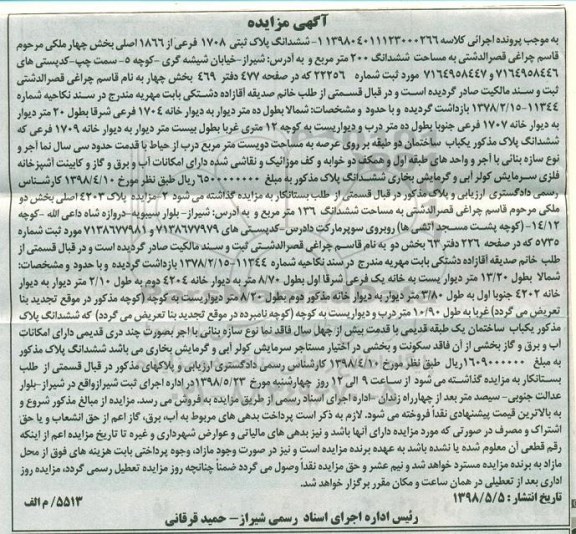 آگهی مزایده
به موجب پرونده اجرائی کلاسه ۱۳۹۸۰۴۰۱۱۱۲۳۰۰۰۲۶۶ ۱- ششدانگ پلاک ثبتی ۱۷۰۸ فرعی از ۱۸۶۶ اصلی بخش چهار ملکی مرحوم
قاسم چراغی قصرالدشتی به مساحت ششدانگ ۲۰۰ متر مربع و به آدرس: شیراز- خیابان شیشه گری -کوچه ۵- سمت چپ-کدپستی های
۷۱۶۴۹۵۸۴۴۶ و ۷۱۶۴۹۵۸۴۴۷ مورد ثبت شماره ۲۲۲۵۶ که در صفحه ۴۷۷ دفتر ۴۶۹ بخش چهار به نام قاسم چراغی قصرالدشتی
ثبت و سند مالکیت صادر گردیده است و در قبال قسمتی از طلب خانم صدیقه آقازاده دشتکی بابت مهریه مندرج در سند نکاحیه شماره
۱۱۳۴۴-۱۳۷۸/۲/۱۵ بازداشت گردیده و با حدود و مشخصات: شمالا بطول ده متر دیوار به دیوار خانه ۱۷۰۴ فرعی شرقا بطول ۲۰ متر دیوار
به دیوار خانه ۱۷۰۷ فرعی جنوبا بطول ده متر درب و دیواریست به کوچه ۱۲ متری غربا بطول بیست متر دیوار به دیوار خانه ۱۷۰۹ فرعی که
ششدانگ پلاک مذکور یکباب ساختمان دو طبقه بر روی عرصه به مساحت دویست متر مربع درب از حیاط با قدمت حدود سی سال نما آجر و
نوع سازه بنائی با آجر و واحد های طبقه اول و همکف دو خوابه و کف موزائیک و نقاشی شده دارای امکانات آب و برق و گاز و کابینت آشپزخانه
فلزی سرمایش کولر آبی و گرمایش بخاری ششدانگ پلاک مذکور به مبلغ ۶۵۰۰۰۰۰۰۰۰ ریال طبق نظر مورخ ۱۳۹۸/۴/۱۰ کارشناس
رسمی دادگستری ارزیابی و پلاک مذکور در قبال قسمتی از طلب بستانکار به مزایده گذاشته می شود ۲- مزایده پلاک ۴۲۰۳ اصلی بخش دو
ملکی مرحوم قاسم چراغی قصرالدشتی به مساحت ششدانگ ۱۳۶ متر مربع و به آدرس: شیراز- بلوار سیبویه-دروازه شاه داعی الله -کوچه
۱۴/۱۲-(کوچه پشت مسجد آتشی ها) روبروی سوپرمارکت دادرس-کدپستی های ۷۱۳۸۶۷۷۹۷۹ و ۷۱۳۸۶۷۷۹۸۱ مورد ثبت
۵۷۳۵ که در صفحه ۲۲۶ دفتر ۶۳ بخش دو به نام قاسم چراغی قصرالدشتی ثبت و سند مالکیت صادر گردیده است و در قبال قسمتی از
طلب خانم صدیقه آقازاده دشتکی بابت مهریه مندرج در سند نکاحیه شماره ۱۱۳۴۴-۱۳۷۸/۲/۱۵ بازداشت گردیده و با حدود و مشخصات:
شمالا بطول ۱۳/۲۰ متر دیواریست به خانه یک فرعی شرقا اول بطول ۸/۷۰ متر به دیوار خانه ۴۲۰۴ دوم به طول ۲/۱۰ متر دیوار به دیوار
خانه ۴۲۰۲ جنوبا اول به طول ۳/۸۰ متر دیوار به دیوار خانه مذکور دوم بطول ۸/۲۰ متر دیواریست به کوچه (کوچه مذکور در موقع تجدید بنا
تعریض می گردد) غربا به طول ۱۰/۹۰ متر درب و دیواریست به کوچه (کوچه نامبرده در موقع تجدید بنا تعریض می گردد) که ششدانگ پلاک
مذکور یکباب ساختمان یک طبقه قدیمی با قدمت بیش از چهل سال فاقد نما نوع سازه بنائی با آجر بصورت چند دری قدیمی دارای امکانات
آب و برق و گاز بخشی از آن فاقد سکونت و بخشی در اختیار مستاجر سرمایش کولر آبی و گرمایش بخاری می باشد ششدانگ پلاک مذکور
به مبلغ ۱۶۰۹۰۰۰۰۰۰ ریال طبق نظر مورخ ۱۳۹۸/۴/۱۰ کارشناس رسمی دادگستری ارزیابی و پلاکهای مذکور در قبال قسمتی از طلب
بستانکار به مزایده گذاشته می شود از ساعت ۹ الی ۱۲ روز چهارشنبه مورخ ۱۳۹۸/۵/۲۳ در اداره اجرای ثبت شیراز واقع در شیراز-بلوار
عدالت جنوبی- سیصد متر بعد از چهارراه زندان -اداره اجرای اسناد رسمی از طریق مزایده به فروش می رسد. مزایده از مبالغ مذکور شروع و
به بالاترین قیمت پیشنهادی نقداً فروخته می شود. لازم به ذکر است پرداخت بدهی های مربوط به آب، برق، گاز اعم از حق انشعاب و یا حق
اشتراک و مصرف در صورتی که مورد مزایده دارای آنها باشد و نیز بدهی های مالیاتی و عوارض شهرداری و غیره تا تاریخ مزایده اعم از اینکه
رقم قطعی آن معلوم شده یا نشده باشد به عهده برنده مزایده است و نیز در صورت وجود مازاد، وجوه پرداختی بابت هزینه های فوق از محل
مازاد به برنده مزایده مسترد خواهد شد و نیم عشر و حق مزایده نقداً وصول می گردد ضمناً چنانچه روز مزایده تعطیل رسمی گردد، مزایده روز
اداری بعد از تعطیلی در همان ساعت و مکان مقرر برگزار خواهد شد.
تاریخ انتشار : ۱۳۹۸/۵/۵
۵۵۱۳/ م الف
رئیس اداره اجرای اسناد رسمی شیراز- حمید قرقانی